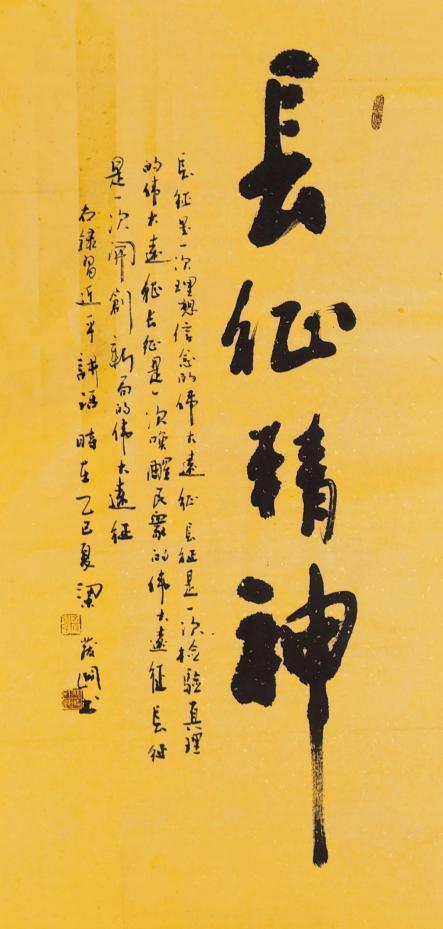 長征精神
長征是一次理想信念的偉大遠征長征是一次檢驗真理
的偉大遠征長征是一次喚醒民衆的偉大遠征長征
是一次開創新局的偉大遠征
右録習近平講話時在乙巳夏梁
書